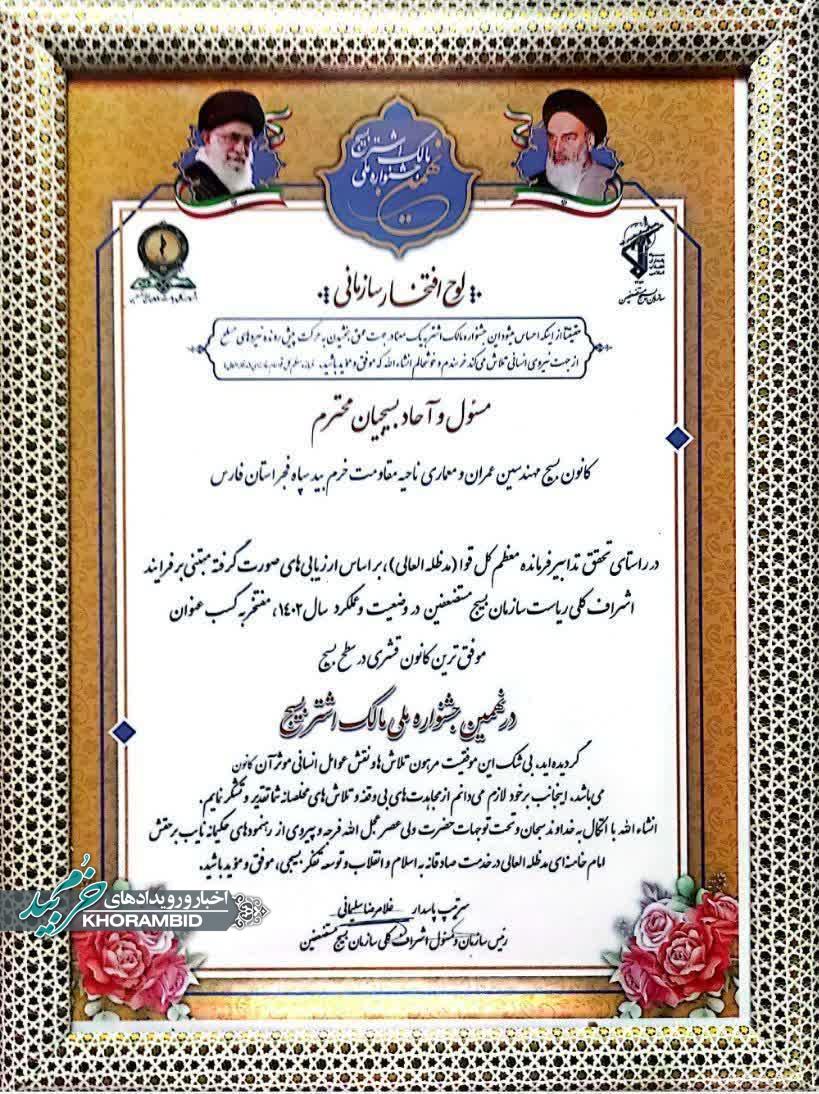 نهمین
جشنواره ملی
مالک اشتر بسیج
سازمان بسیج مستضعفین
لوح افتخار سازمانی
حقیقتاً از اینکه احساس میشود این جشنواره مالک اشتر به یک معنا در جهت عمق بخشیدن به حرکت پیش رونده نیروهای مسلح
از جهت نیروی انسانی تلاش می کند خرسندم و خوشحالم انشاء الله که موفق و مؤید باشید.
مسئول و آحاد بسیجیان محترم
کانون بسیج مهندسین عمران و معماری ناحیه مقاومت خرم بید سپاه فجر استان فارس
در راستای تحقق تدابیر فرمانده معظم کل قوا (مدظله العالی)، بر اساس ارزیابی های صورت گرفته مبتنی بر فرایند
اشراف کلی ریاست سازمان بسیج مستضعفین در وضعیت و عملکرد سال ۱۴۰۲، مفتخر به کسب عنوان
موفق ترین کانون قشری در سطح بسیج
در نهمین جشنواره ملی مالک اشتر بسیج
گردیده اید، بی شک این موفقیت مرهون تلاش ها و نقش عوامل انسانی موثر آن کانون
می باشد. اینجانب بر خود لازم می دانم از مجاهدت های بی وقفه و تلاش های مخلصانه شما تقدیر و تشکر نمایم.
انشاء الله با اتکال به خداوند سبحان و تحت توجهات حضرت ولی عصر عجل الله فرجه و پیروی از رهنمودهای حکیمانه نایب برحقش
امام خامنه ای مدظله العالی در خدمت صادقانه به اسلام و انقلاب و توسعه تفکر بسیجی، موفق و مؤید باشید.
سرتیپ پاسدار غلامرضا سلیمانی
رئیس سازمان و مسئول اشراف کلی سازمان بسیج مستضعفین
اخبار و رویدادهای
خرمبید
KHORAMBID